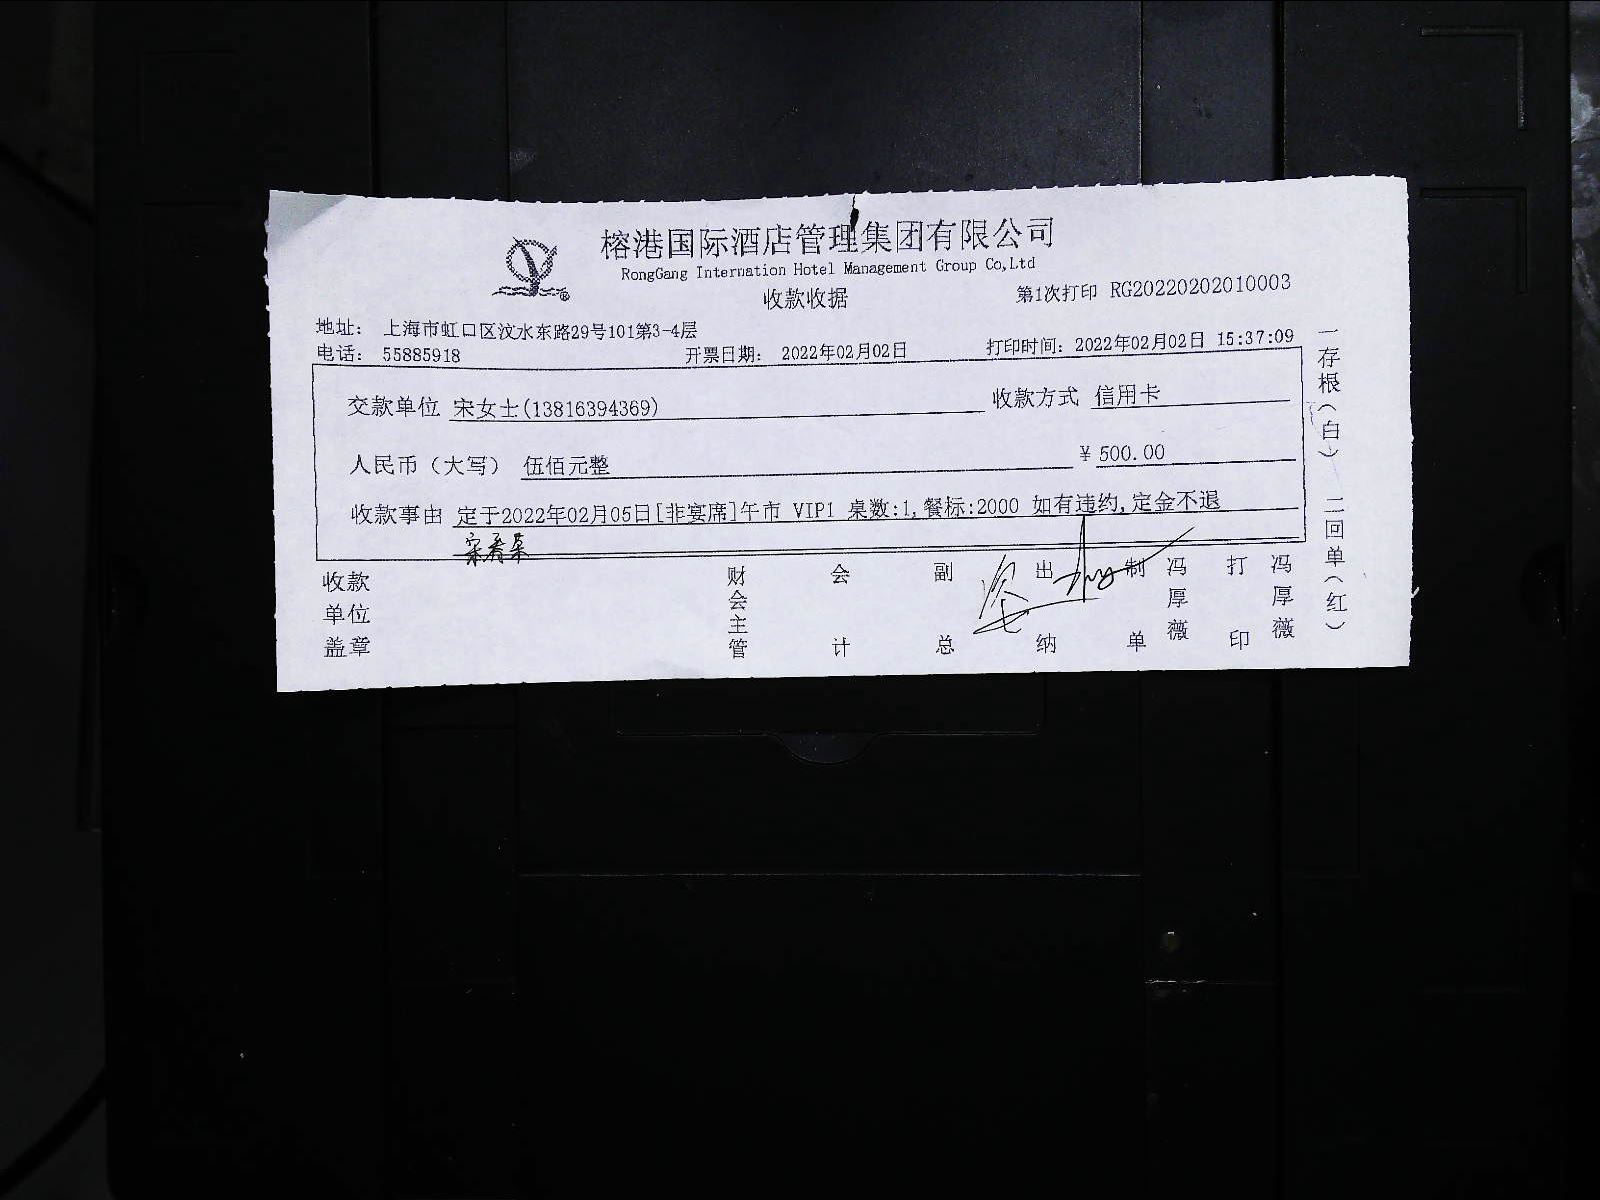 榕港国际酒店管理集团有限公司
RongGang Internation Hotel Management Group Co,Ltd
收款收据
第1次打印 RG20220202010003
地址： 上海市虹口区汶水东路29号101第3-4层
电话： 55885918
开票日期： 2022年02月02日
打印时间：2022年02月02日 15:37:09
交款单位 宋女士(13816394369)
收款方式 信用卡
人民币（大写） 伍佰元整
¥ 500.00
收款事由 定于2022年02月05日[非宴席]午市 VIP1 桌数:1,餐标:2000 如有违约,定金不退
收款单位盖章
财会主管
会计
副总
出纳
制单
冯厚薇
打印
冯厚薇
一存根（白） 二回单（红）